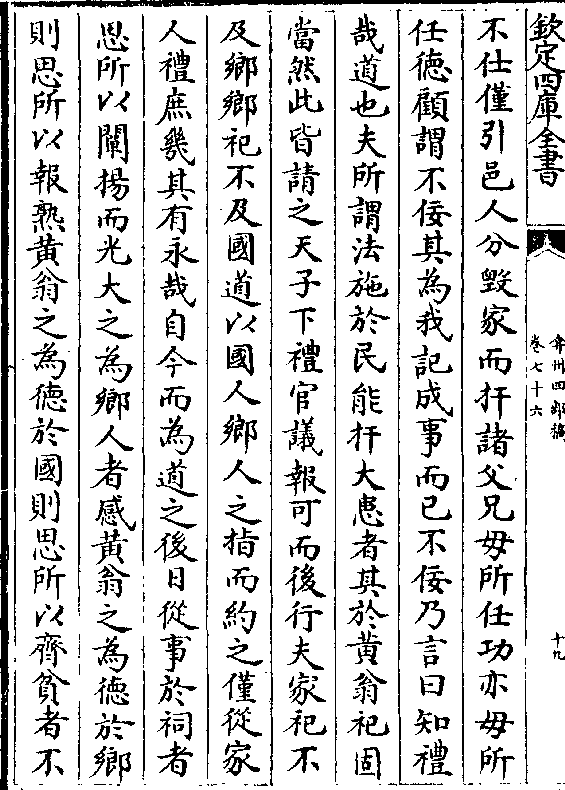 欽定四庫全書
弇州四部稿
卷七十六
十九
不仕僅引邑人分毁家而扞諸父兄毋所任功亦毋所
任德顧謂不佞其為我記成事而已不佞乃言曰知禮
哉道也夫所謂法施於民能扞大患者其於黄翁祀固
當然此皆請之天子下禮官議報可而後行夫家祀不
及鄉鄉祀不及國道以國人鄉人之指而約之僅從家
人禮庶幾其有永哉自今而為道之後日從事於祠者
思所以闡揚而光大之為鄉人者感黄翁之為德於鄉
則思所以報熟黄翁之為德於國則思所以齊貧者不